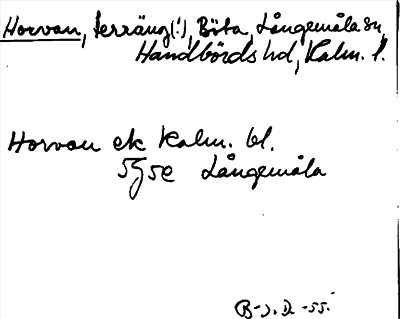 Horvan, terräng(!), Böta, Långemåla sn,
Handbörds hd, Kalm. l.
Horvan ek Kalm. bl.
5G5e Långemåla
B-J.D. -55.